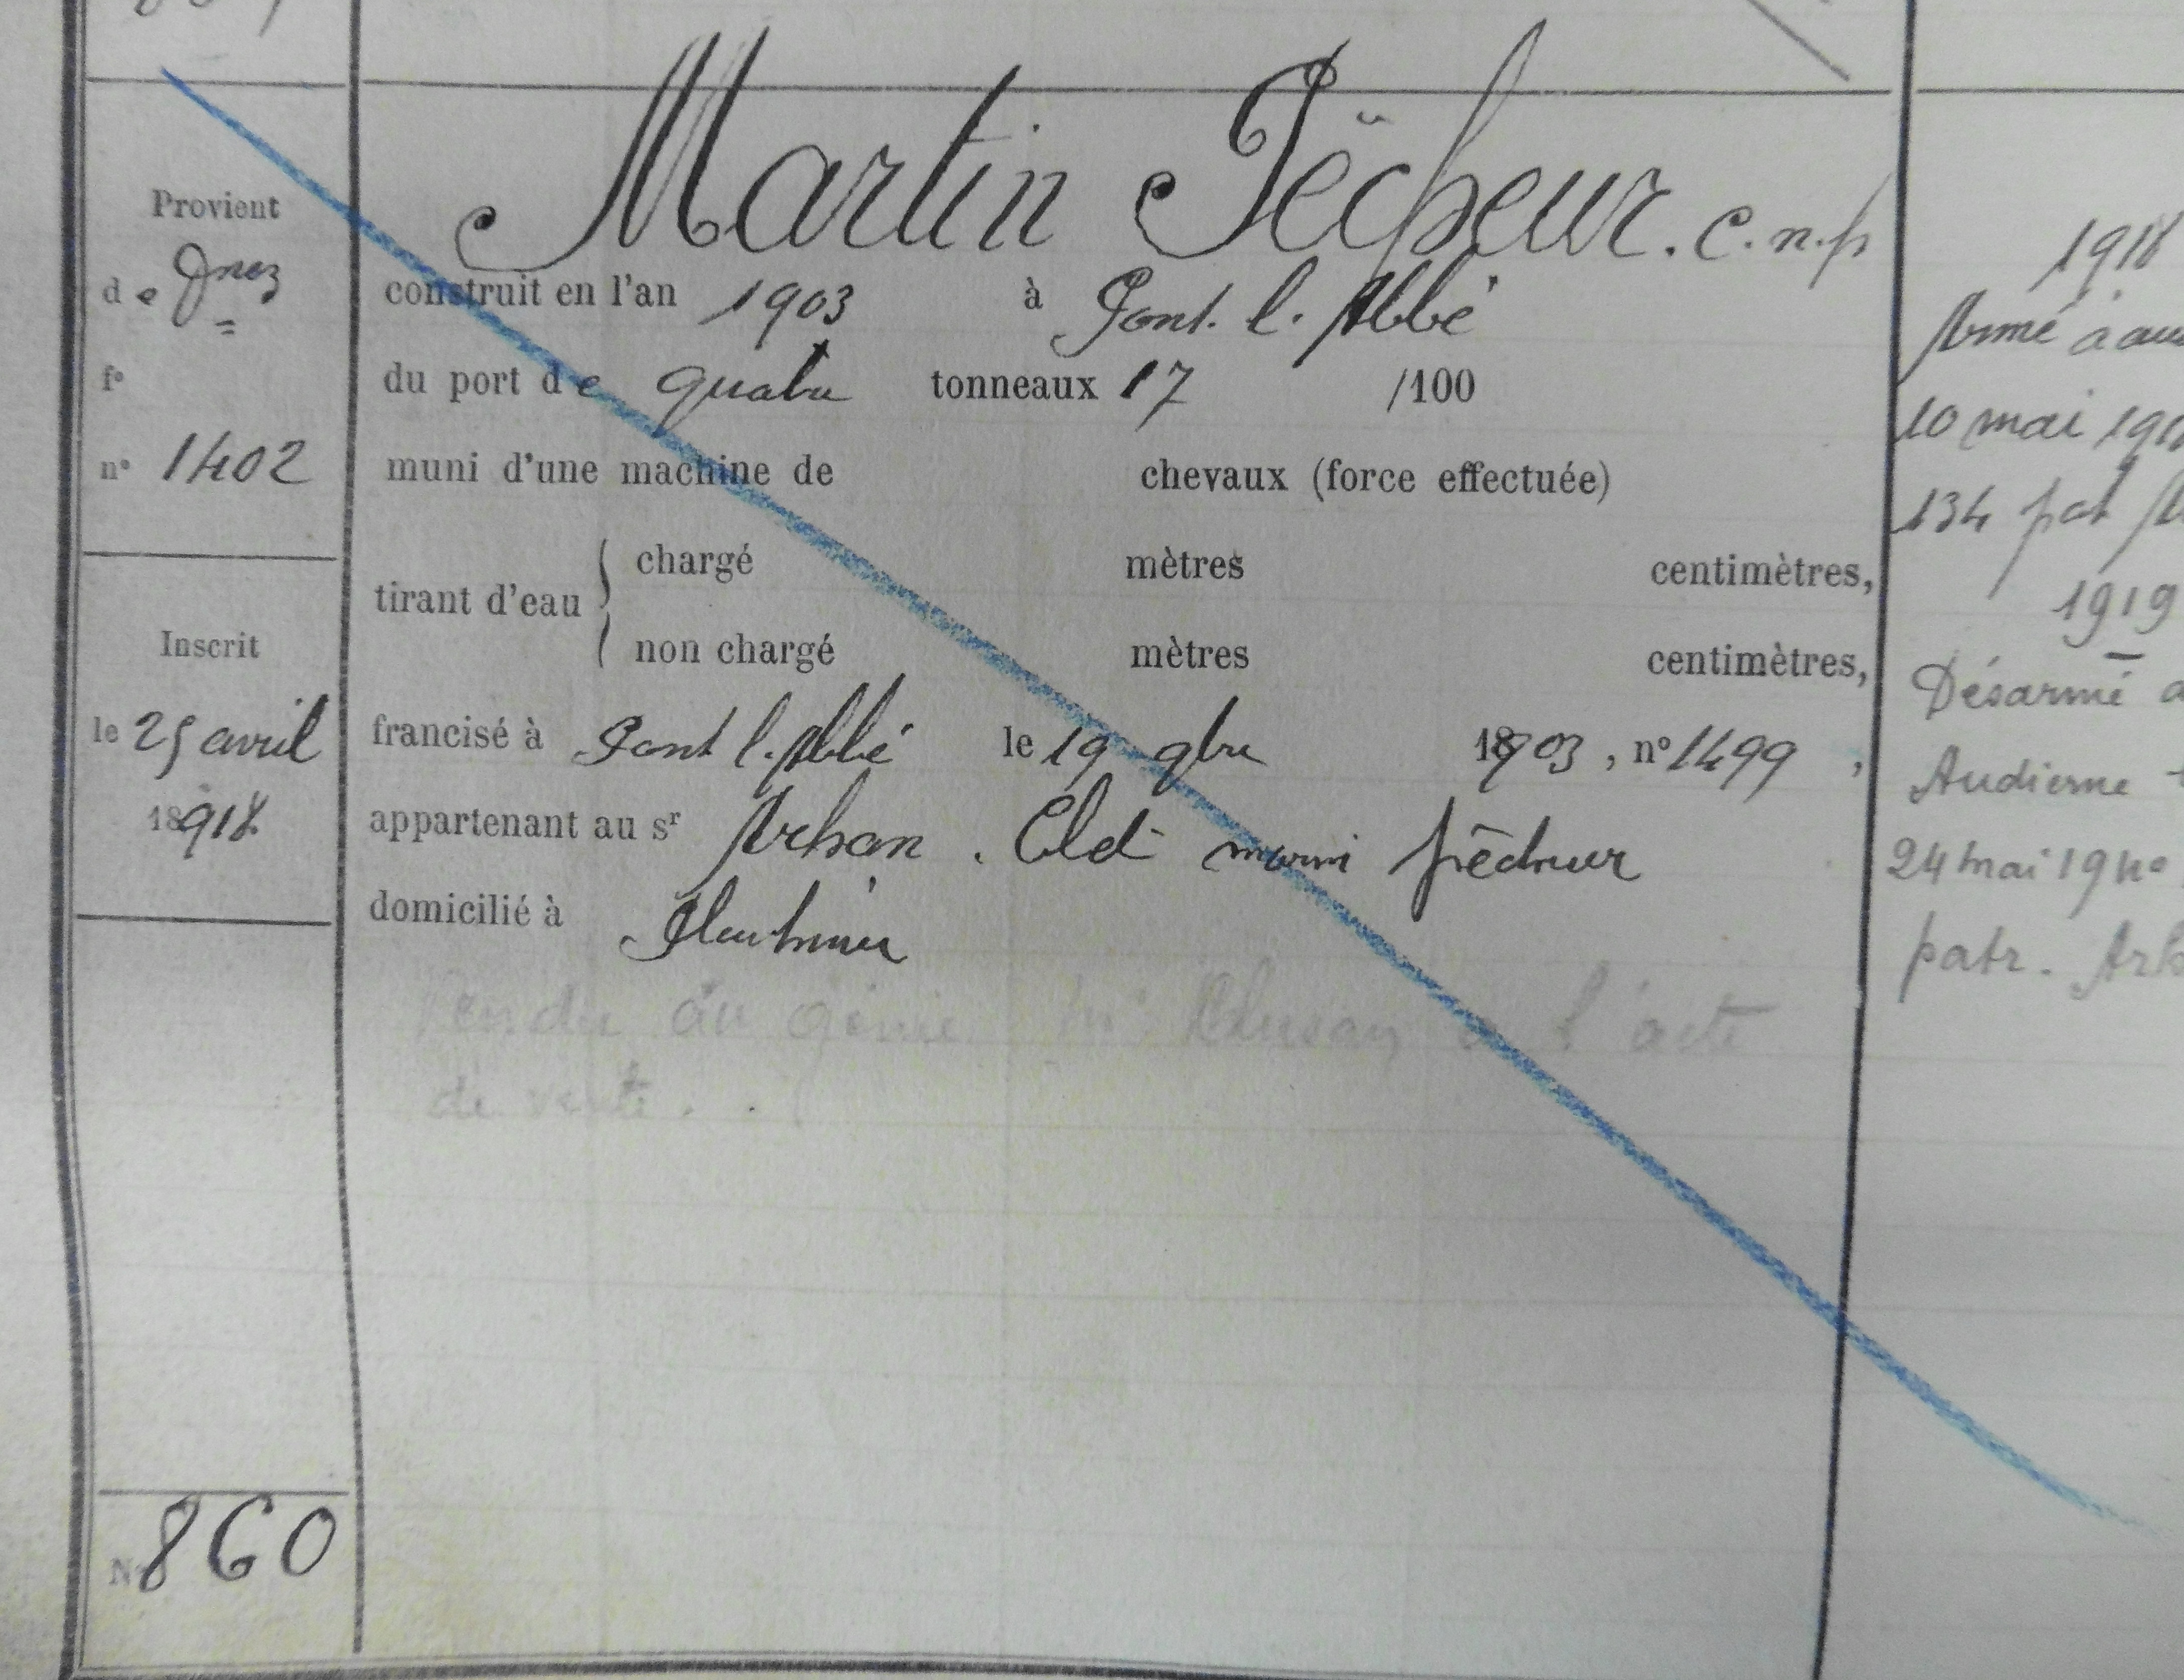 Martin Pêcheur. c.n.p
Provient
de Dnez
f°
n° 1402
construit en l'an 1903 à Pont. l. Abbé
du port de quatre tonneaux 17 /100
muni d'une machine de chevaux (force effectuée)
tirant d'eau { chargé mètres centimètres,
non chargé mètres centimètres,
Inscrit
le 25 avril
18918
francisé à Pont l. Abbé le 19 9bre 1903, n° 1499,
appartenant au sr Arhan. Cld marin pêcheur
domicilié à
Vendu au génie l'acte
de vente.
N° 860
1918
Armé à au
10 mai 191
134 pat
1919
Désarmé a
Audierne
24 mai 19 n°
patr. Arh